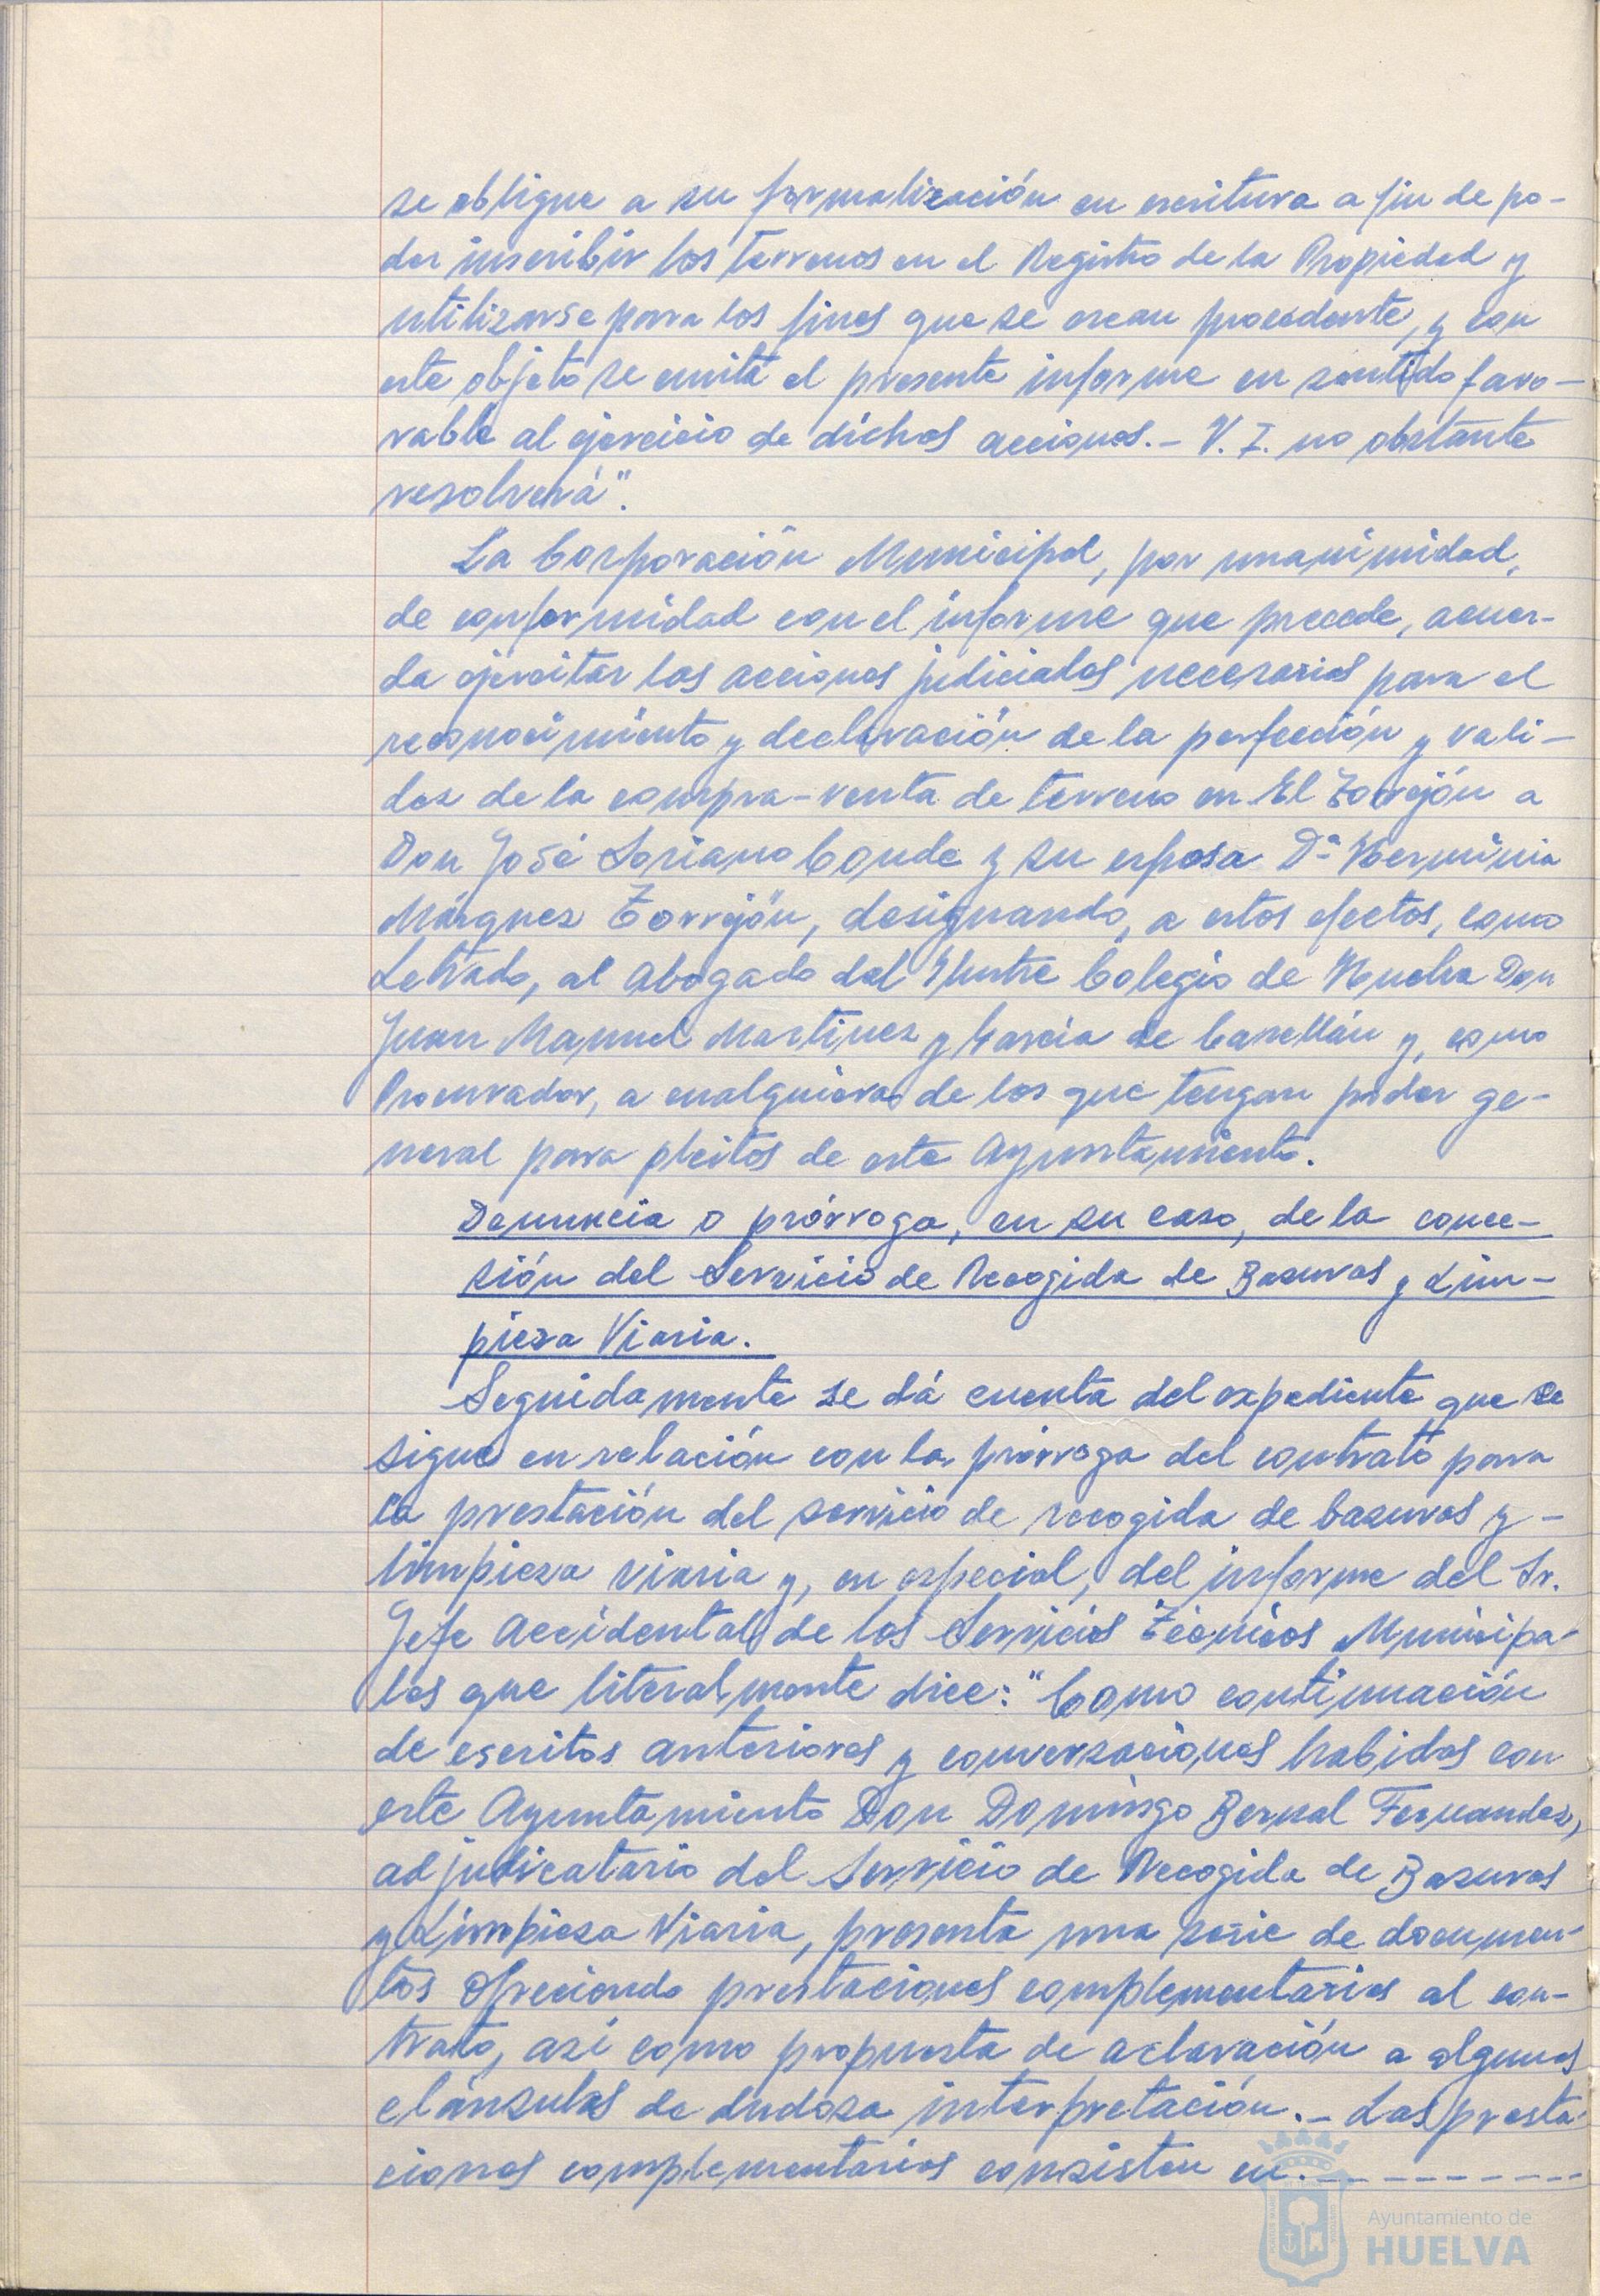 se obligue a su formalización en escritura a fin de po-
der inscribir los terrenos en el Registro de la Propiedad y
utilizarse para los fines que se crean procedente, y con
este objeto se emite el presente informe en sentido favo-
rable al ejercicio de dichas acciones.- V. I. no obstante
resolverá".
La Corporación Municipal, por unanimidad,
de conformidad con el informe que precede, acuer-
da ejercitar las acciones judiciales necesarias para el
reconocimiento y declaración de la perfección y vali-
dez de la compra-venta de terreno en El Torrejón a
Don José Soriano Conde y su esposa Dª Herminia
Márquez Torrejón, designando, a estos efectos, como
Letrado, al Abogado del Ilustre Colegio de Huelva Don
Juan Manuel Martinez y García de Casellán y, como
Procurador, a cualquiera de los que tengan poder ge-
neral para pleitos de este Ayuntamiento.
Denuncia o prórroga, en su caso, de la conce-
sión del Servicio de Recogida de Basuras y Lim-
pieza Viaria.
Seguidamente se dá cuenta del expediente que se
sigue en relación con la prórroga del contrato para
la prestación del servicio de recogida de basuras y -
limpieza viaria y, en especial, del informe del Sr.
Jefe Accidental de los Servicios Técnicos Municipa-
les que literalmente dice: "Como continuación
de escritos anteriores y conversaciones habidas con
este Ayuntamiento Don Domingo Bernal Fernandez,
adjudicatario del Servicio de Recogida de Basuras
y Limpieza Viaria, presenta una serie de documen-
tos ofreciendo prestaciones complementarias al con-
trato, asi como propuesta de aclaración a algunas
cláusulas de dudosa interpretación.- Las presta-
ciones complementarias consisten en.- - - - - - - - - -
Ayuntamiento de
HUELVA